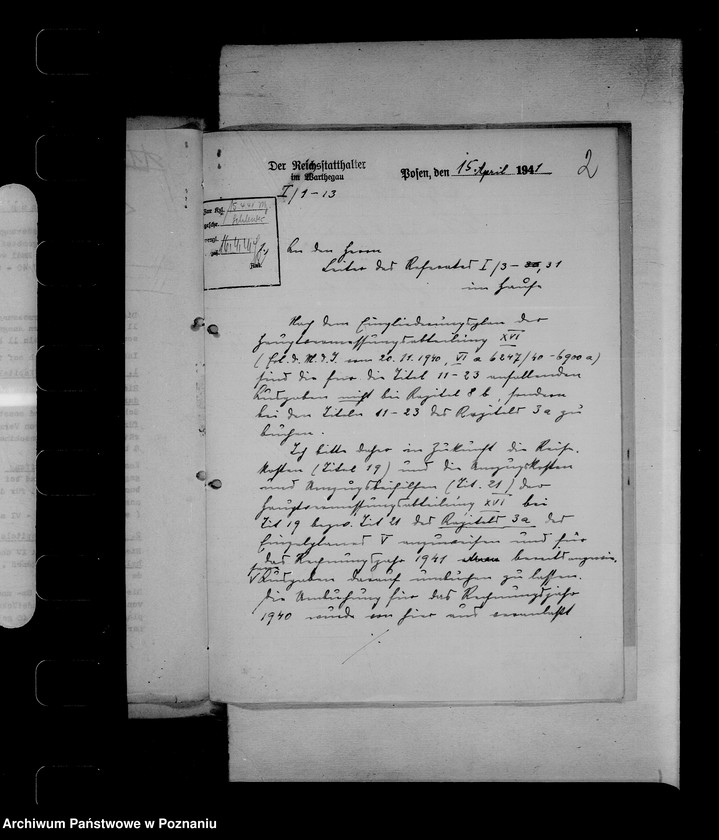 Der Reichsstatthalter
im Warthegau
I/1-13
Posen, den 15. April 1941
2
An den Herrn
Leiter des Referates I/3 - 31
im Hause
Nach dem Eingliederungsplan der
Hauptvermessungsabteilung XVI
(Erl. d. M. d. I. vom 20.11.1940, VI a 6247/40-6900a)
sind die für die Titel 11-23 anfallenden
Ausgaben nicht bei Kapitel 8 b, sondern
bei den Titeln 11-23 des Kapitels 3a zu
buchen.
Ich bitte daher in Zukunft die Reise-
kosten (Titel 19) und die Umzugskosten
und Umzugsbeihilfen (Tit. 21) der
Hauptvermessungsabteilung XVI bei
Tit 19 bezw. Tit 21 des Kapitels 3a des
Einzelplanes V anzuweisen und für
das Rechnungsjahr 1941 bereits
Ausgaben darauf umbuchen zu lassen.
Die Umbuchung für das Rechnungsjahr
1940 wurde von hier aus veranlaßt
Archiwum Państwowe w Poznaniu